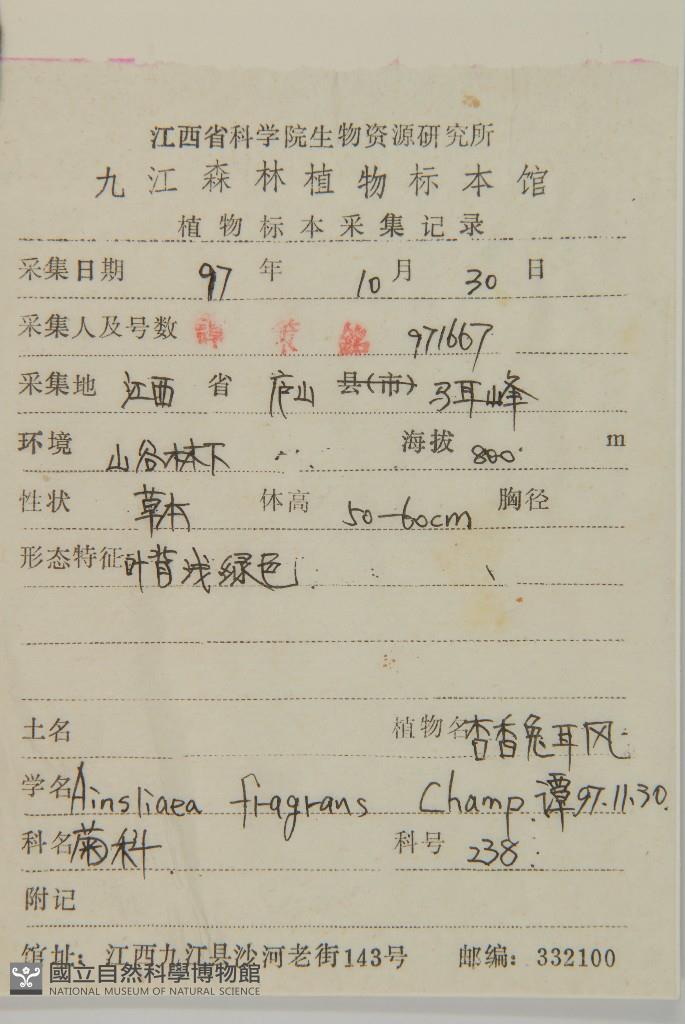 江西省科学院生物资源研究所
九江森林植物标本馆
植物标本采集记录
采集日期 97 年 10 月 30 日
采集人及号数 譚 策 銘 971667
采集地 江西 省 庐山 县(市) 马耳峰
环境 山谷林下 海拔 800 m
性状 草本 体高 50-60cm 胸径
形态特征 叶背浅绿色.
土名 植物名 杏香兔耳风
学名 Ainsliaea fragrans Champ. 谭97.11.30.
科名 菊科 科号 238
附记
馆址：江西九江县沙河老街143号 邮编：332100
國立自然科學博物館
NATIONAL MUSEUM OF NATURAL SCIENCE